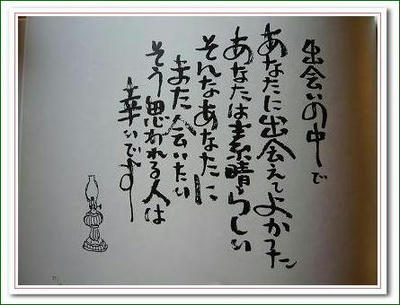 出会いの中で
あなたに出会えてよかった
あなたは素晴らしい
そんなあなたに
また会いたい
そう思われる人は
幸いです